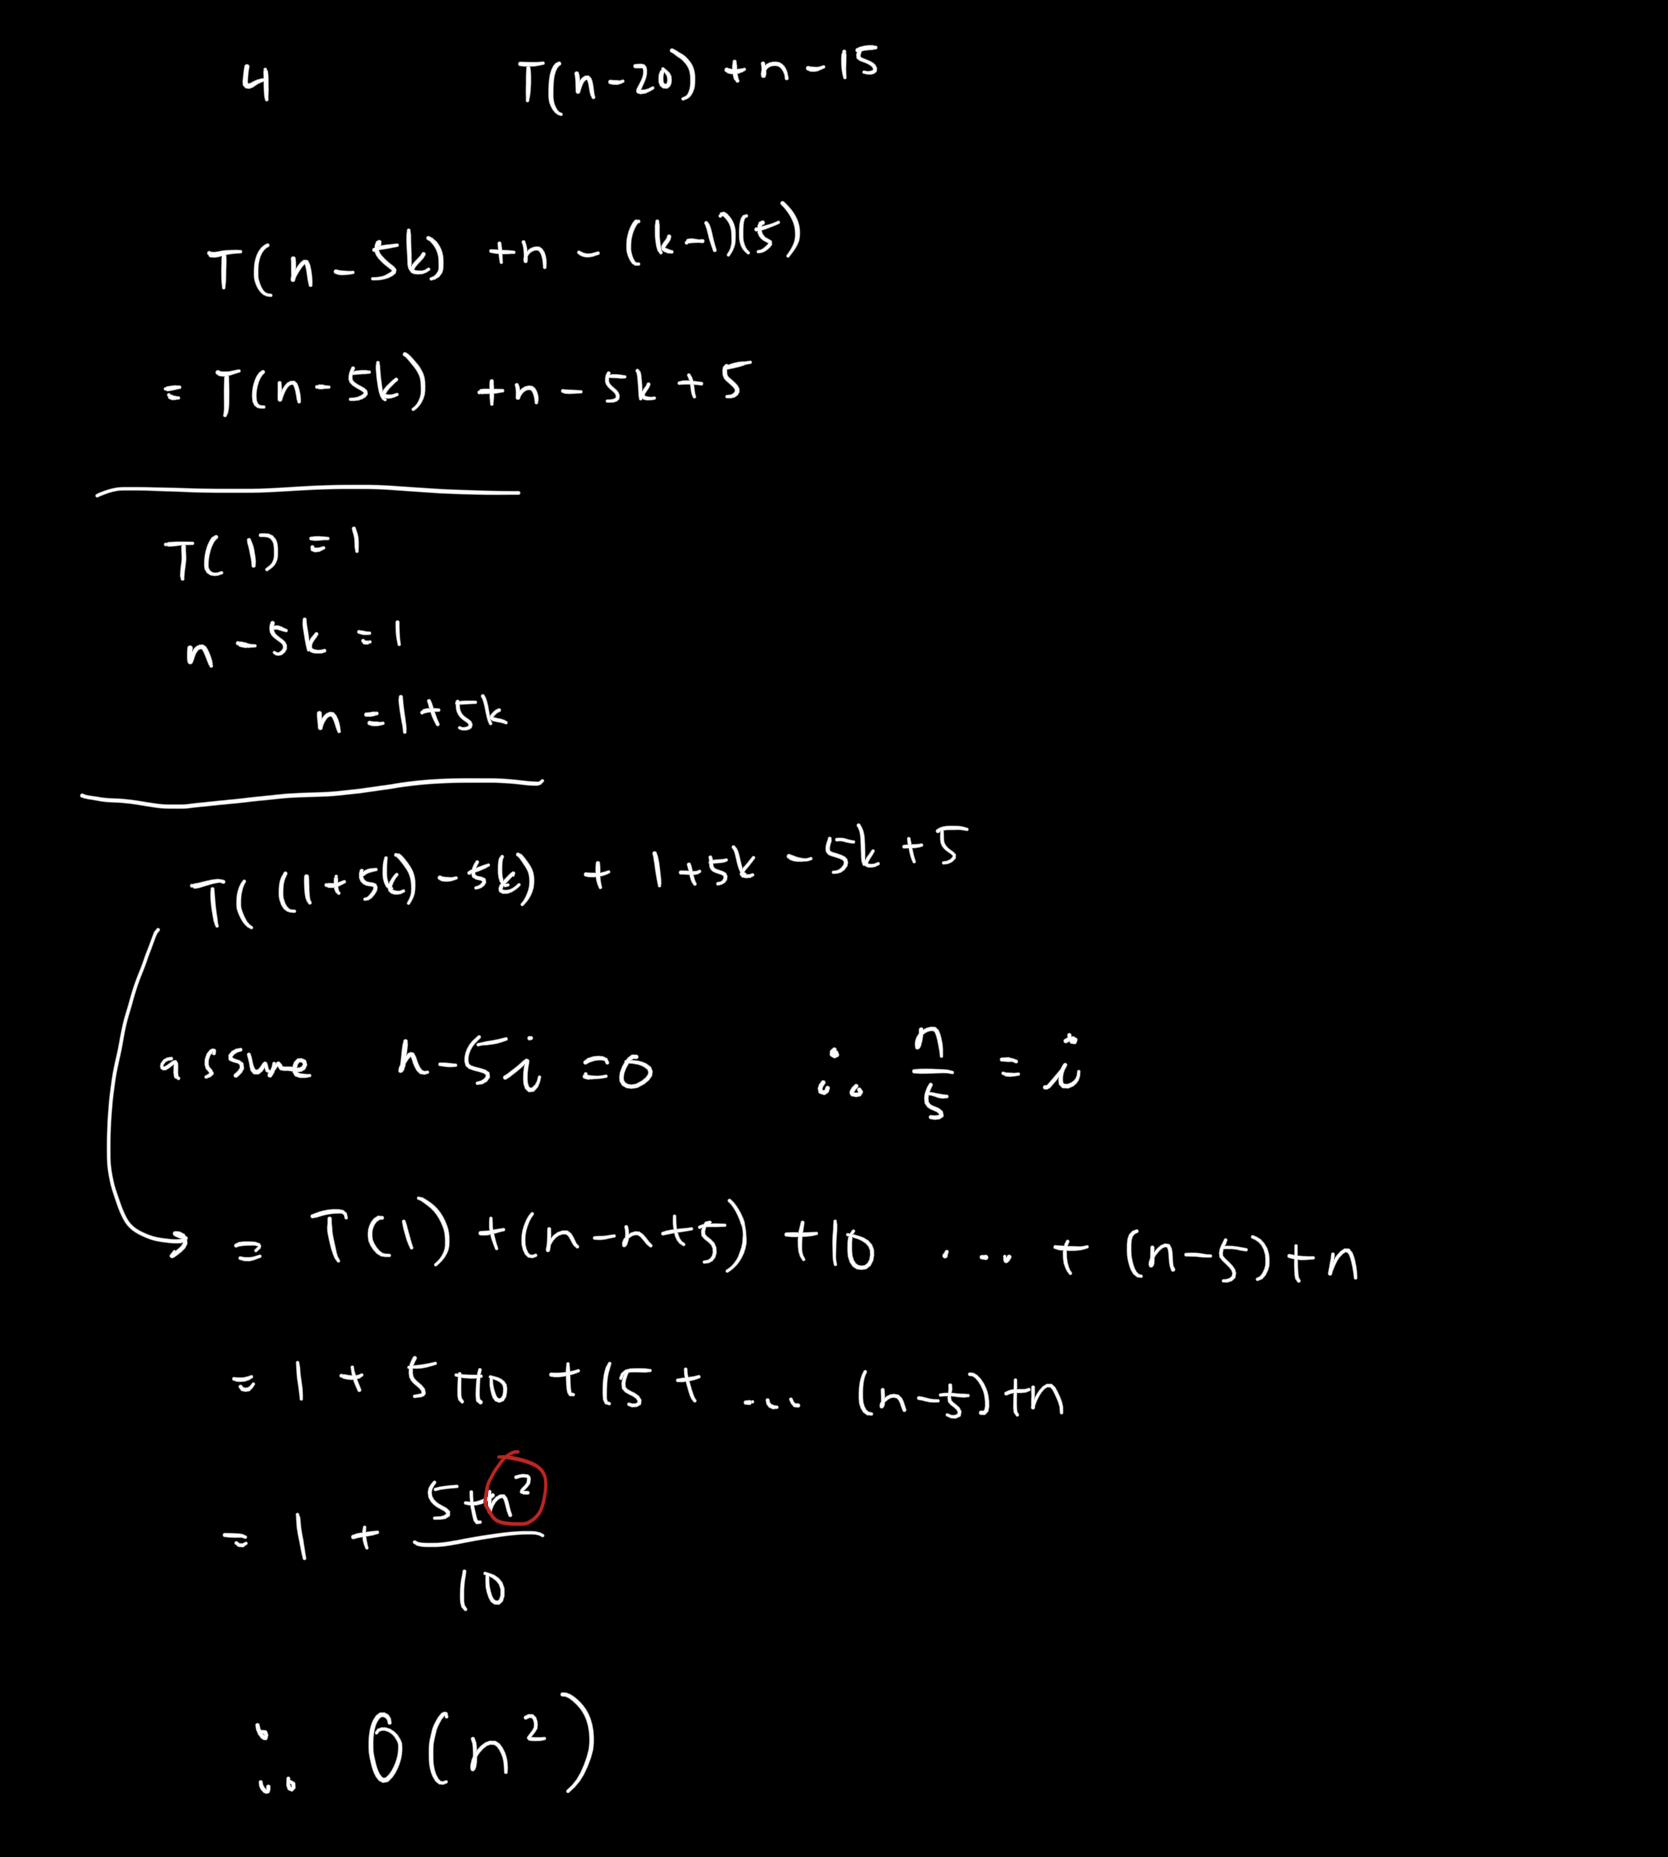 4 T(n-20) +n-15
T(n-5k) +n - (k-1)(5)
= T(n-5k) +n - 5k + 5
T(1) = 1
n - 5k = 1
n = 1+5k
T((1+5k) - 5k) + 1+5k - 5k + 5
assume n-5i = 0 ∴ n/5 = i
= T(1) + (n-n+5) + 10 ... + (n-5) + n
= 1 + 5 + 10 + 15 + ... (n-5) + n
= 1 + (5+n²)/10
∴ O(n²)